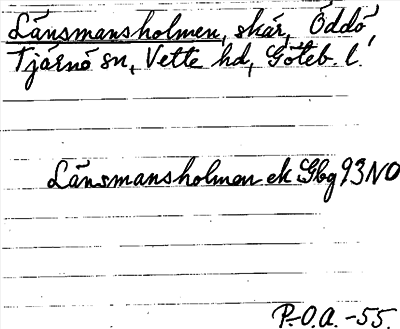 Länsmansholmen, skär, Öddö,
Tjärnö sn, Vette hd, Göteb. l.
Länsmansholmen ek Gbg 93 NO
P.-O.A. -55.